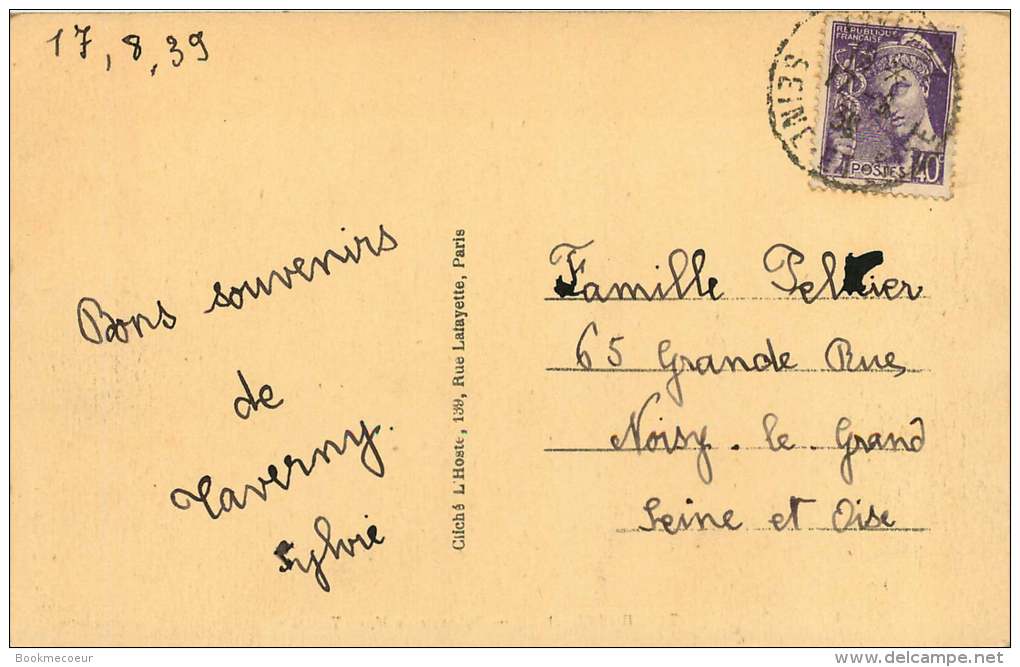 17, 8, 39
Bons souvenirs
de
Taverny.
Sylvie
Cliché L'Hoste, 139, Rue Lafayette, Paris
SEINE
RÉPUBLIQUE
FRANÇAISE
POSTES
40c
Famille
65 Grande Rue
Noisy-le-Grand
Seine et Oise
Bookmecoeur
delcampe.net